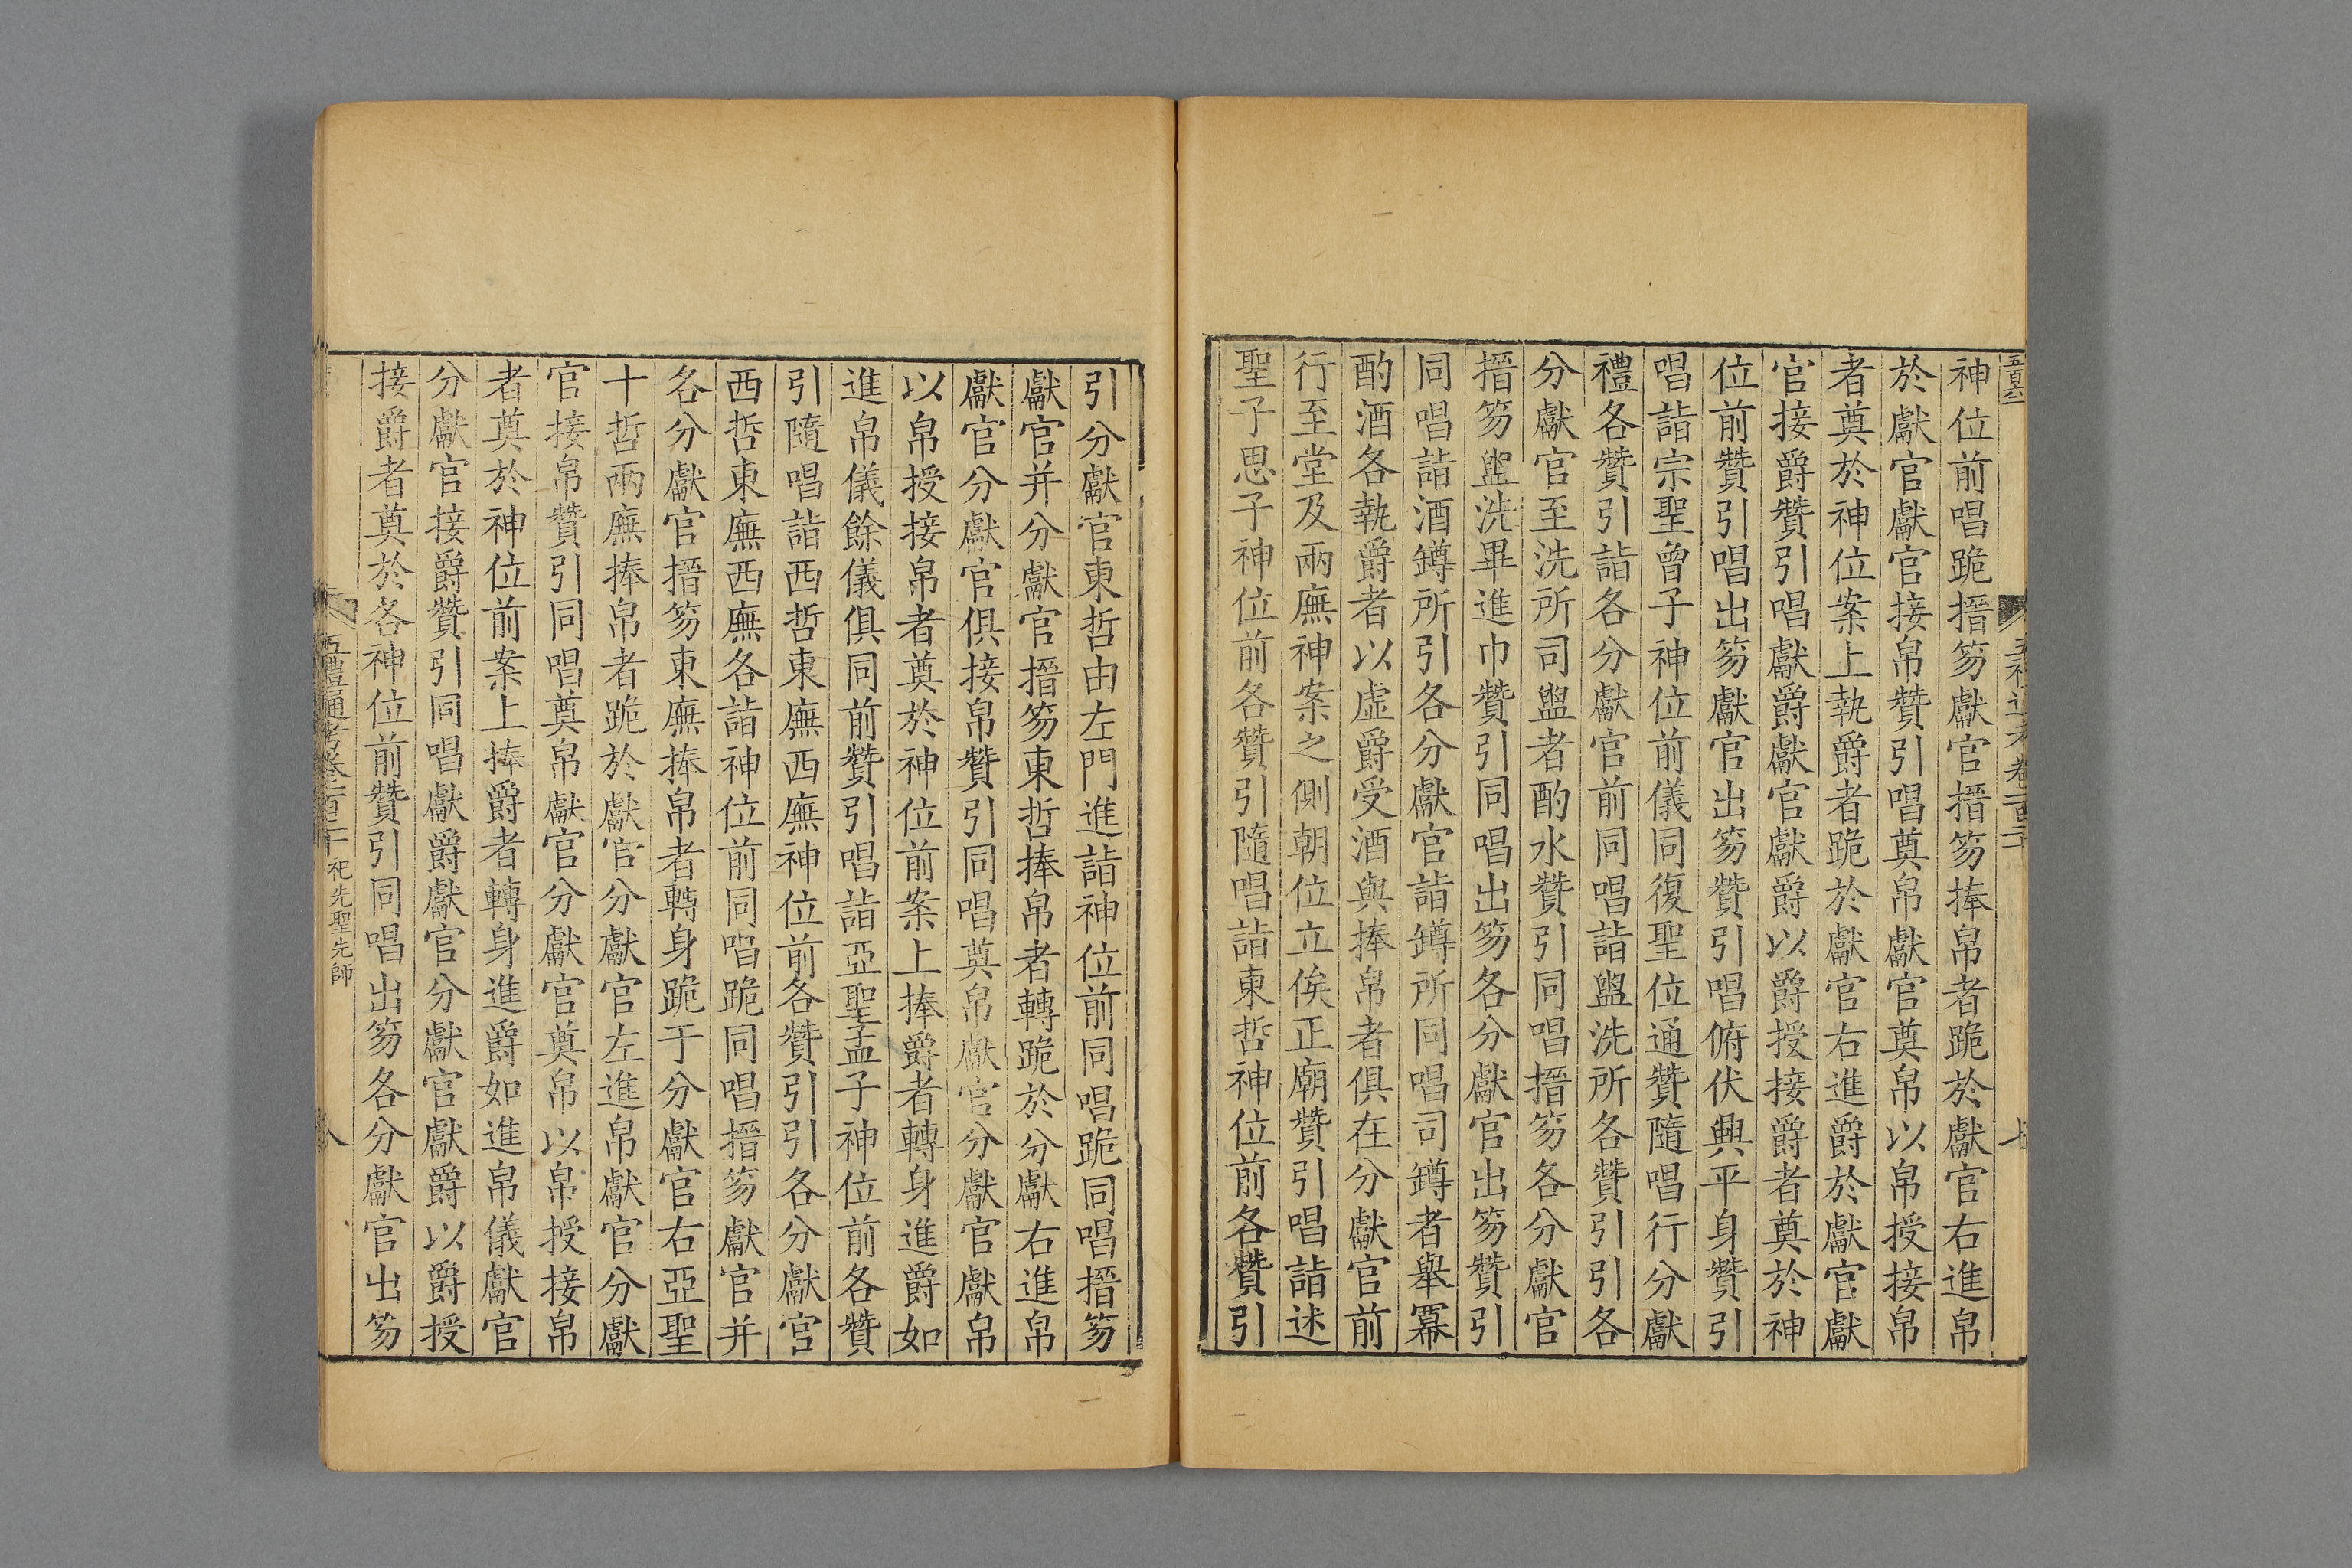 神位前唱跪搢笏獻官搢笏捧帛者跪於獻官右進帛
於獻官獻官接帛贊引唱奠帛獻官奠帛以帛授接帛
者奠於神位案上執爵者跪於獻官右進爵於獻官獻
官接爵贊引唱獻爵獻官獻爵以爵授接爵者奠於神
位前贊引唱出笏獻官出笏贊引唱俯伏興平身贊引
唱詣宗聖曾子神位前儀同復聖位通贊隨唱行分獻
禮各贊引詣各分獻官前同唱詣盥洗所各贊引引各
分獻官至洗所司盥者酌水贊引同唱搢笏各分獻官
搢笏盥洗畢進巾贊引同唱出笏各分獻官出笏贊引
同唱詣酒罇所引各分獻官詣罇所同唱司罇者舉羃
酌酒各執爵者以虛爵受酒與捧帛者俱在分獻官前
行至堂及兩廡神案之側朝位立俟正廟贊引唱詣述
聖子思子神位前各贊引隨唱詣東哲神位前各贊引
引分獻官東哲由左門進詣神位前同唱跪同唱搢笏
獻官并分獻官搢笏東哲捧帛者轉跪於分獻右進帛
獻官分獻官俱接帛贊引同唱奠帛獻官分獻官獻帛
以帛授接帛者奠於神位前案上捧爵者轉身進爵如
進帛儀餘儀俱同前贊引唱詣亞聖孟子神位前各贊
引隨唱詣西哲東廡西廡神位前各贊引引各分獻官
西哲東廡西廡各詣神位前同唱跪同唱搢笏獻官并
各分獻官搢笏東廡捧帛者轉身跪于分獻官右亞聖
十哲兩廡捧帛者跪於獻官分獻官左進帛獻官分獻
官接帛贊引同唱奠帛獻官分獻官奠帛以帛授接帛
者奠於神位前案上捧爵者轉身進爵如進帛儀獻官
分獻官接爵贊引同唱獻爵獻官分獻官獻爵以爵授
接爵者奠於各神位前贊引同唱出笏各分獻官出笏
五禮通考卷一百二十 祀先聖先師 八